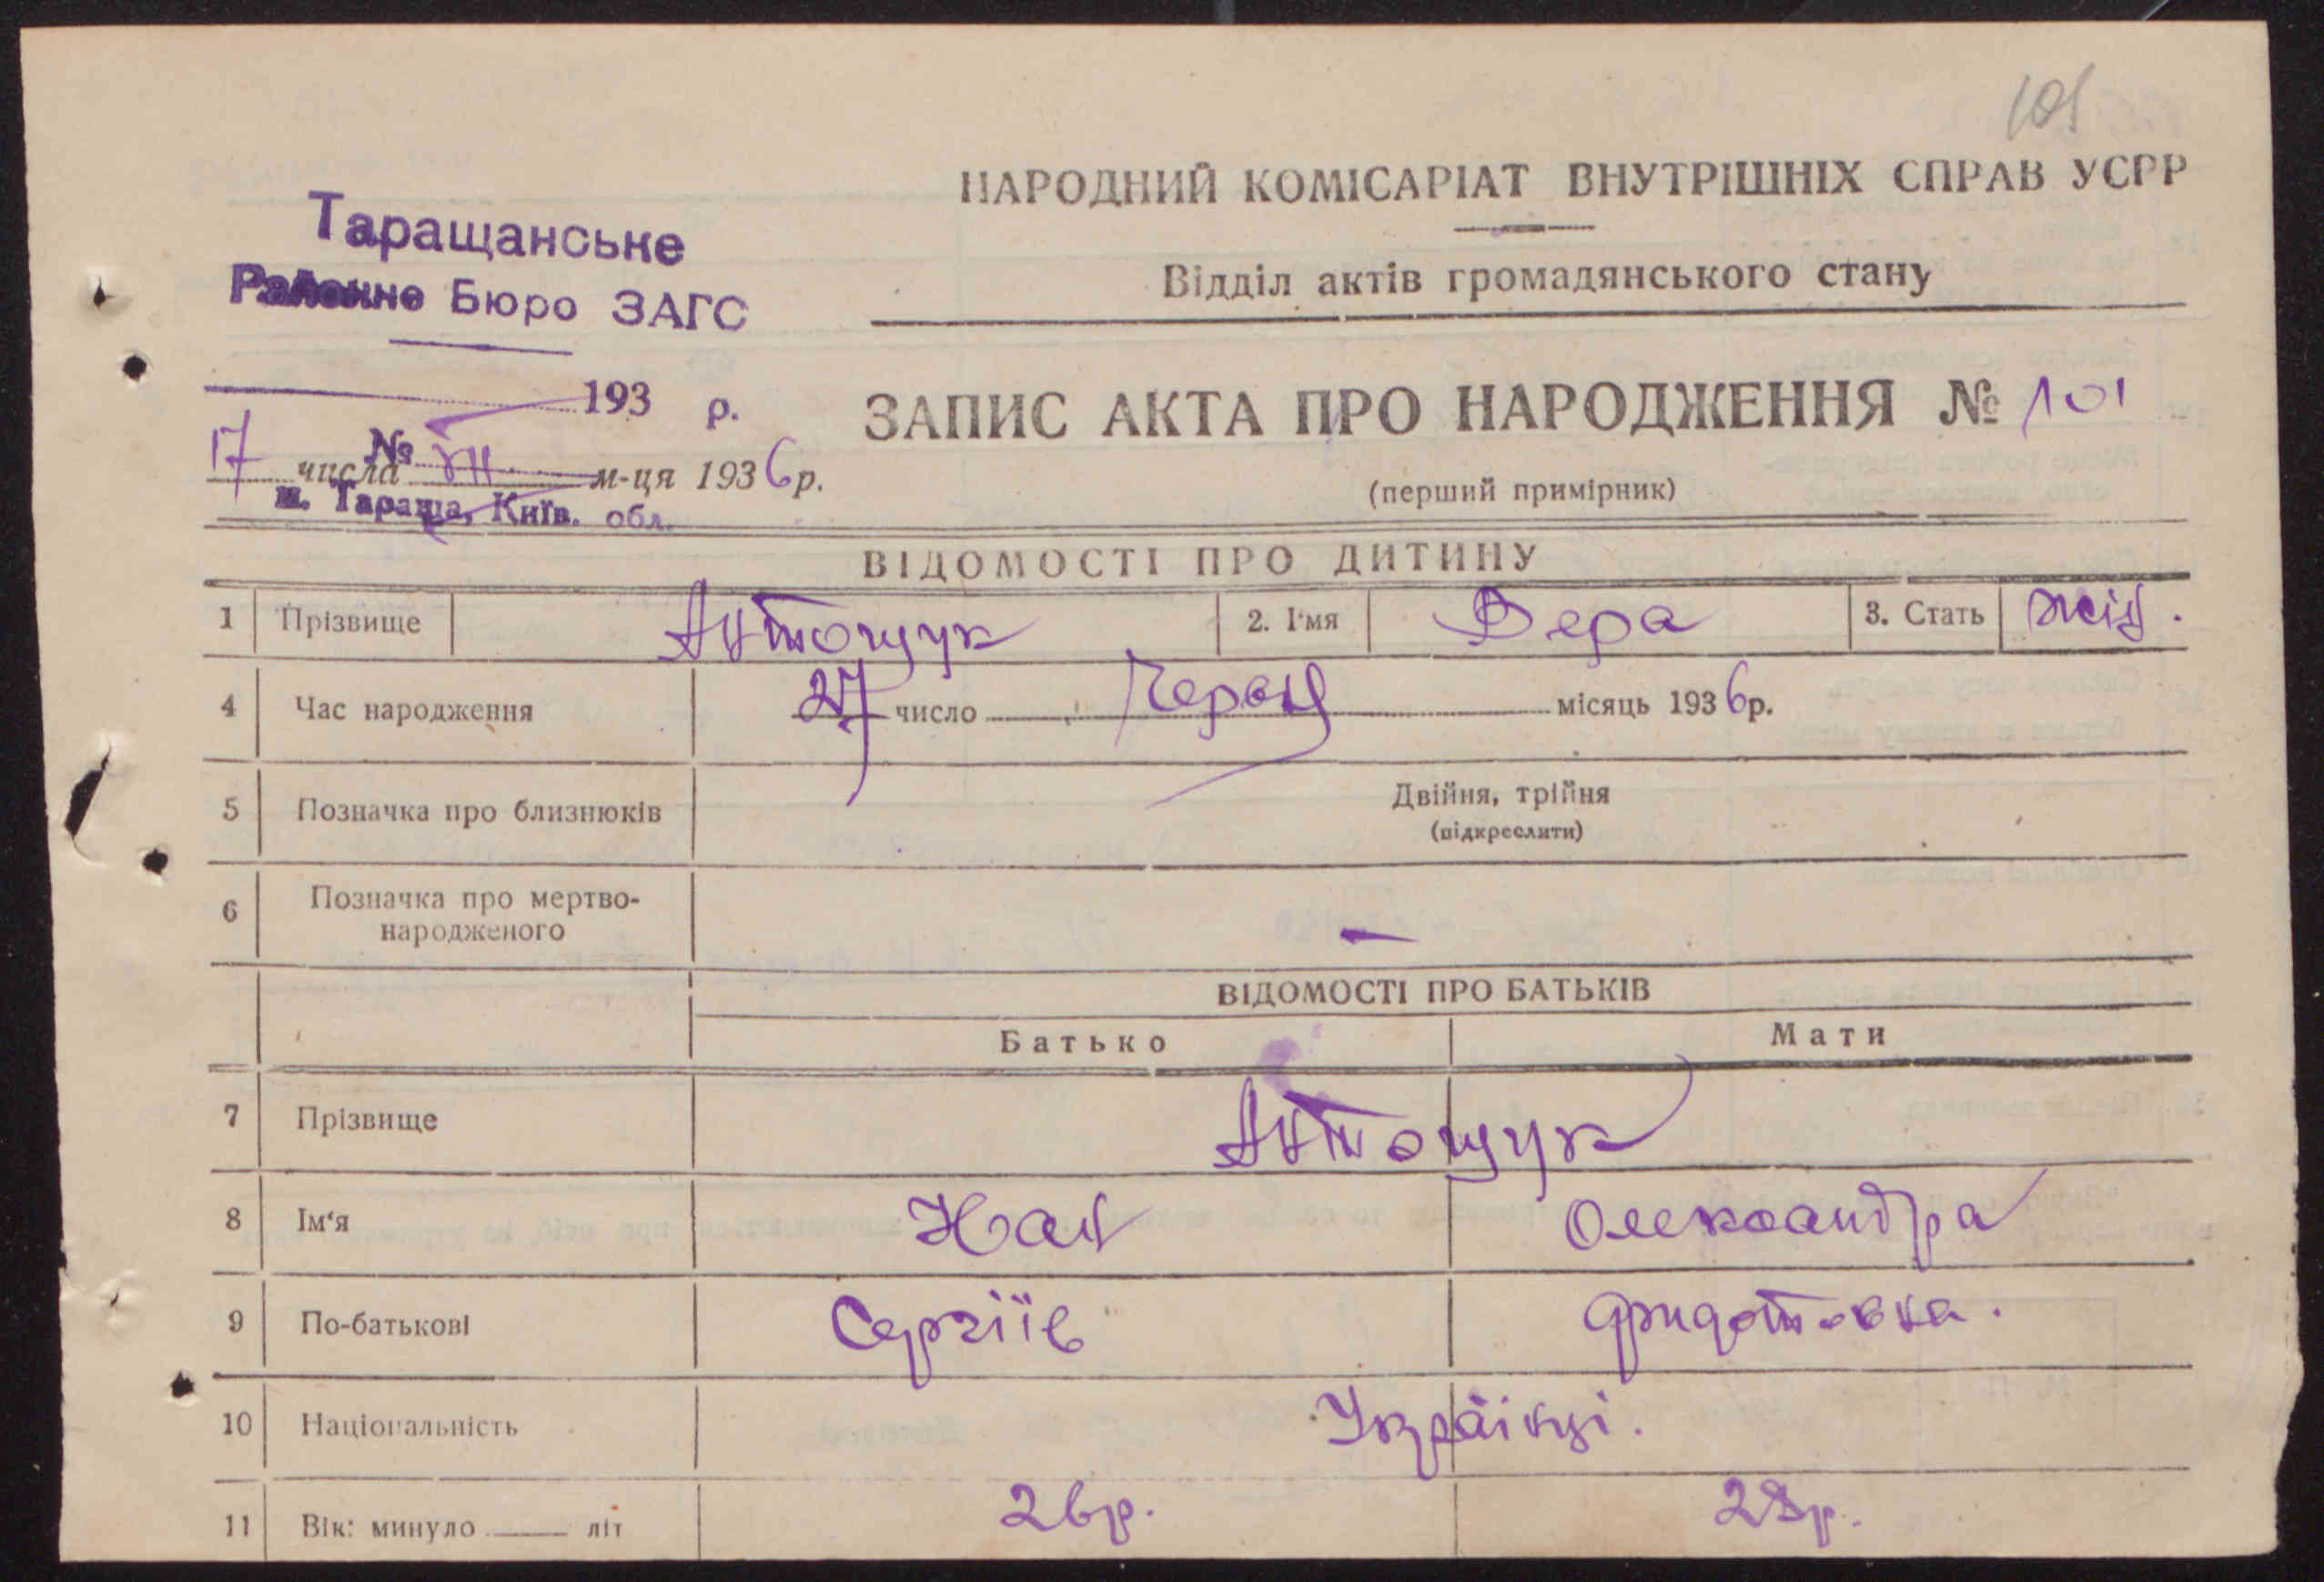 101
НАРОДНИЙ КОМІСАРІАТ ВНУТРІШНІХ СПРАВ УСРР
Таращанське
Районне Бюро ЗАГС
Відділ актів громадянського стану
193 р.
ЗАПИС АКТА ПРО НАРОДЖЕННЯ № 101
№
17 числа VII м-ця 1936 р.
(перший примірник)
м. Тараща, Київ. обл.
ВІДОМОСТІ ПРО ДИТИНУ
1 Прізвище Антощук 2. І'мя Вера 3. Стать жін.
4 Час народження 27 число Червня місяць 1936 р.
5 Позначка про близнюків Двійня, трійня
(підкреслити)
6 Позначка про мертво-
народженого —
ВІДОМОСТІ ПРО БАТЬКІВ
Батько Мати
7 Прізвище Антощук
8 Ім'я Іван Олександра
9 По-батькові Сергіїв
10 Національність Українці.
11 Вік: минуло літ 26р. 28р.